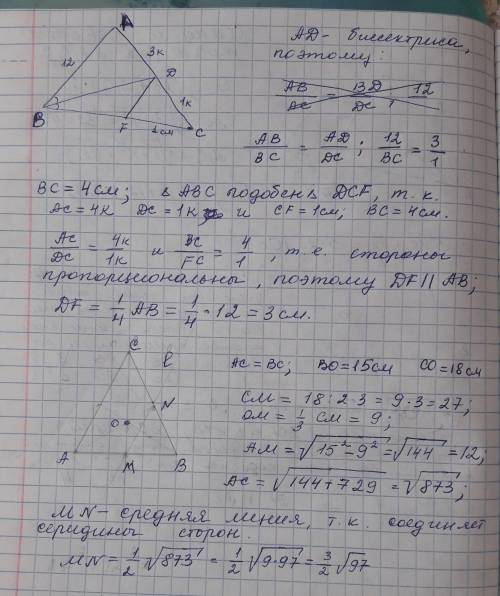 A
12
3к
D
1к
B
F
1см
C
AD - биссектриса,
поэтому:
AB/AC = BD/DC, 12
AB/BC = AD/DC ; 12/BC = 3/1
BC = 4 см; △ ABC подобен DCF, т.к.
AC = 4к DC = 1к и CF = 1см; BC = 4см.
AC/DC = 4к/1к и BC/FC = 4/1, т.е. стороны
пропорциональны, поэтому DF || AB;
DF = 1/4 AB = 1/4 · 12 = 3 см.
C
ℓ
N
O
A
M
B
AC = BC; BO = 15см CO = 18см
CM = 18 : 2 · 3 = 9 · 3 = 27;
OM = 1/3 CM = 9;
AM = √15² - 9² = √144 = 12;
AC = √144 + 729 = √873;
MN - средняя линия, т.к. соединяет
середины сторон.
MN = 1/2 √873 = 1/2 √9·97 = 3/2 √97